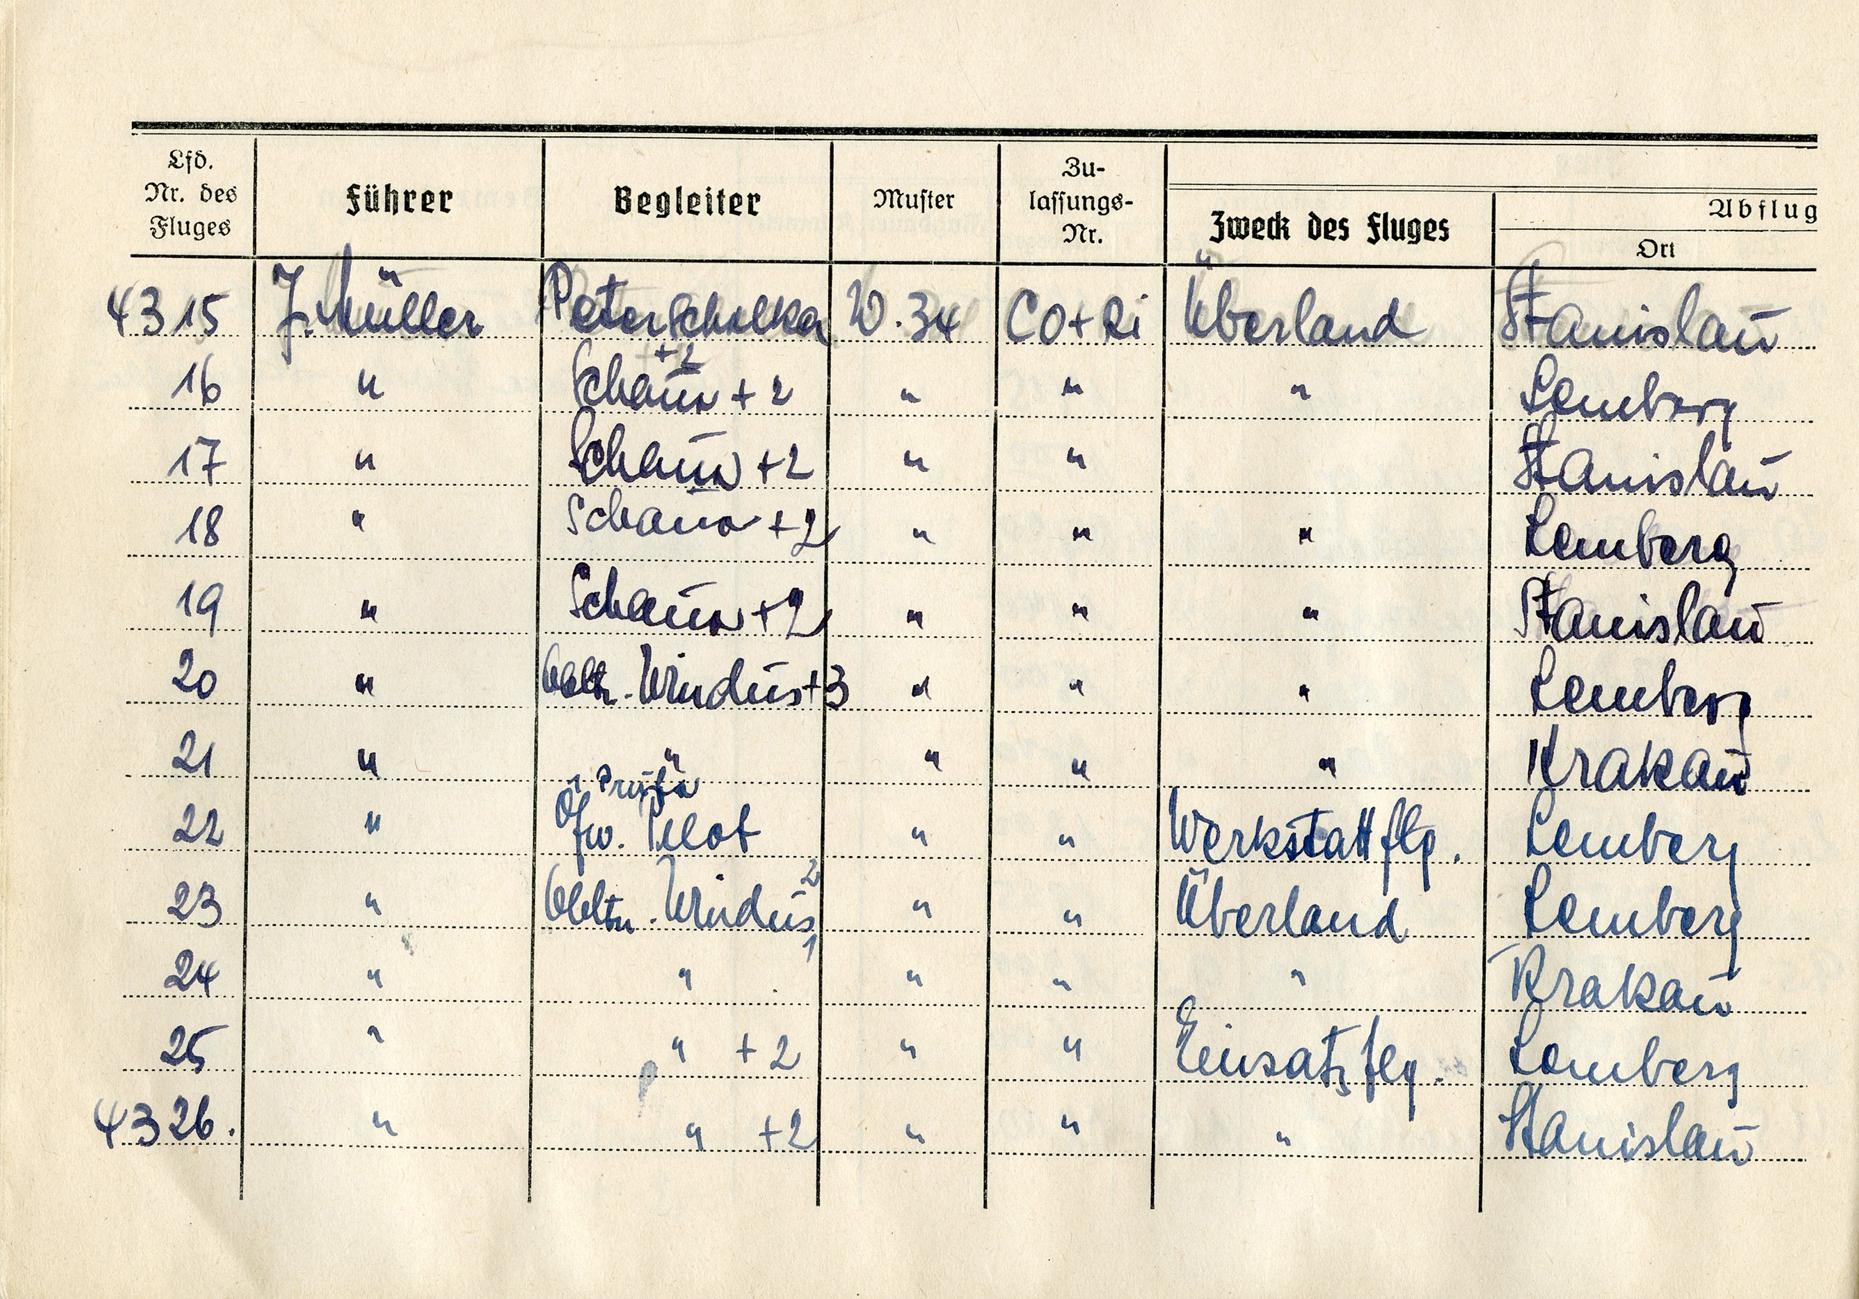 Lfd. Nr. des Fluges | Führer | Begleiter | Muster | Zu- lassungs- Nr. | Zweck des Fluges | Abflug Ort
4315 J. Müller Peter W. 34 CO+Ri Überland Stanislau
+2
16 " Schaur + 2 " " " Lemberg
17 " Schaur +2 " " Stanislau
18 " Schaur +2 " " " Lemberg
19 " Schaur +2 " " " Stanislau
20 " Obltn. Windus +3 " " " Lemberg
21 " " " " " Krakau
22 " Ofw. " " Werkstattflg. Lemberg
23 " Obltn. Windus 2 " " Überland Lemberg
24 " " 1 " " " Krakau
25 " " +2 " " Einsatzflg. Lemberg
4326. " " +2 " " " Stanislau